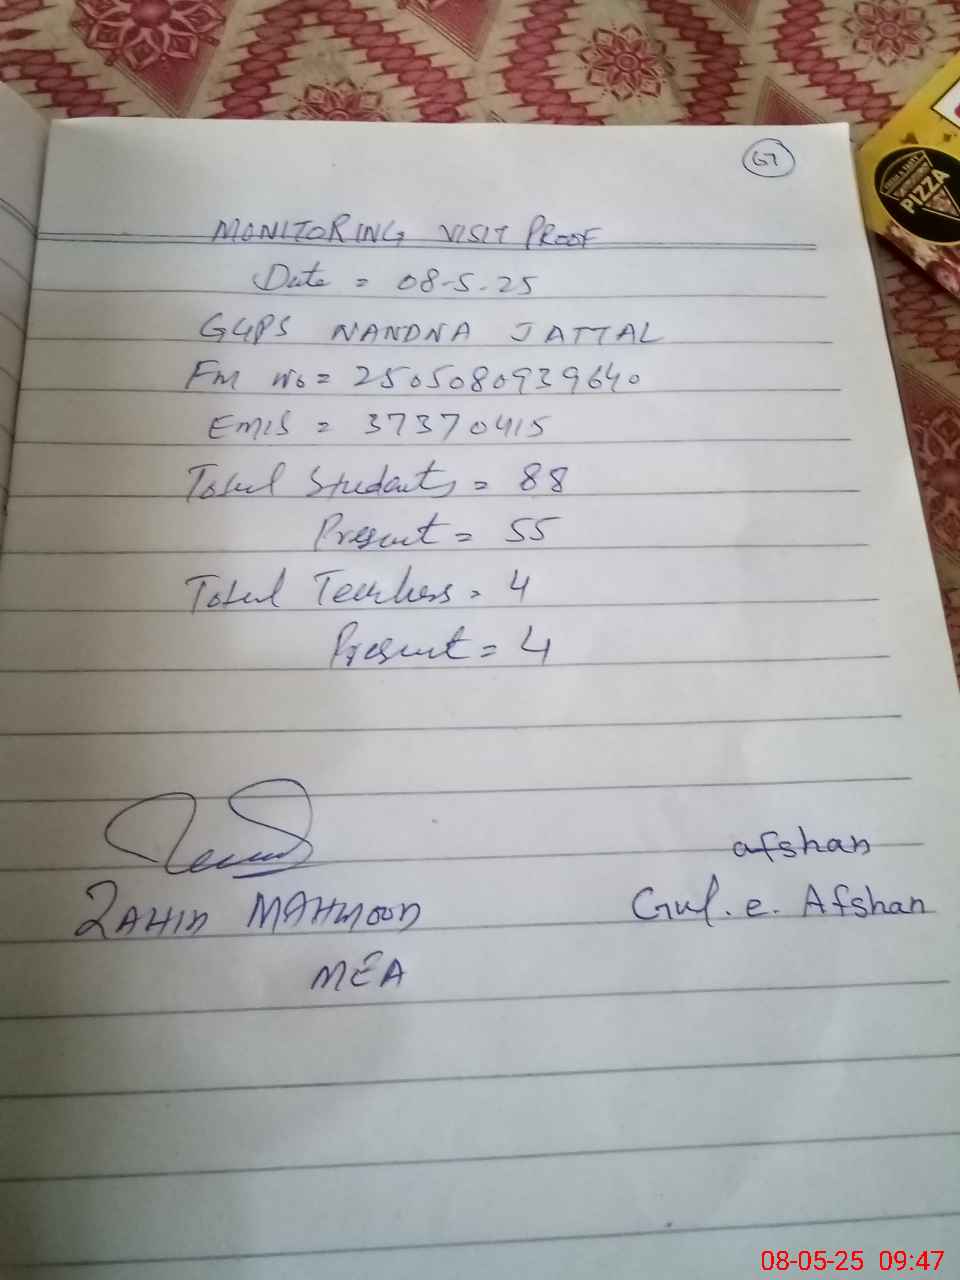 67
MONITORING VISIT PROOF
Date = 08-5-25
GGPS NANDNA JATTAL
Fm No = 2505080939640
EMIS = 37370415
Total Students = 88
Present = 55
Total Teachers = 4
Present = 4
afshan
ZAHID MAHMOOD
Gul.e. Afshan
MEA
PIZZA
08-05-25 09:47